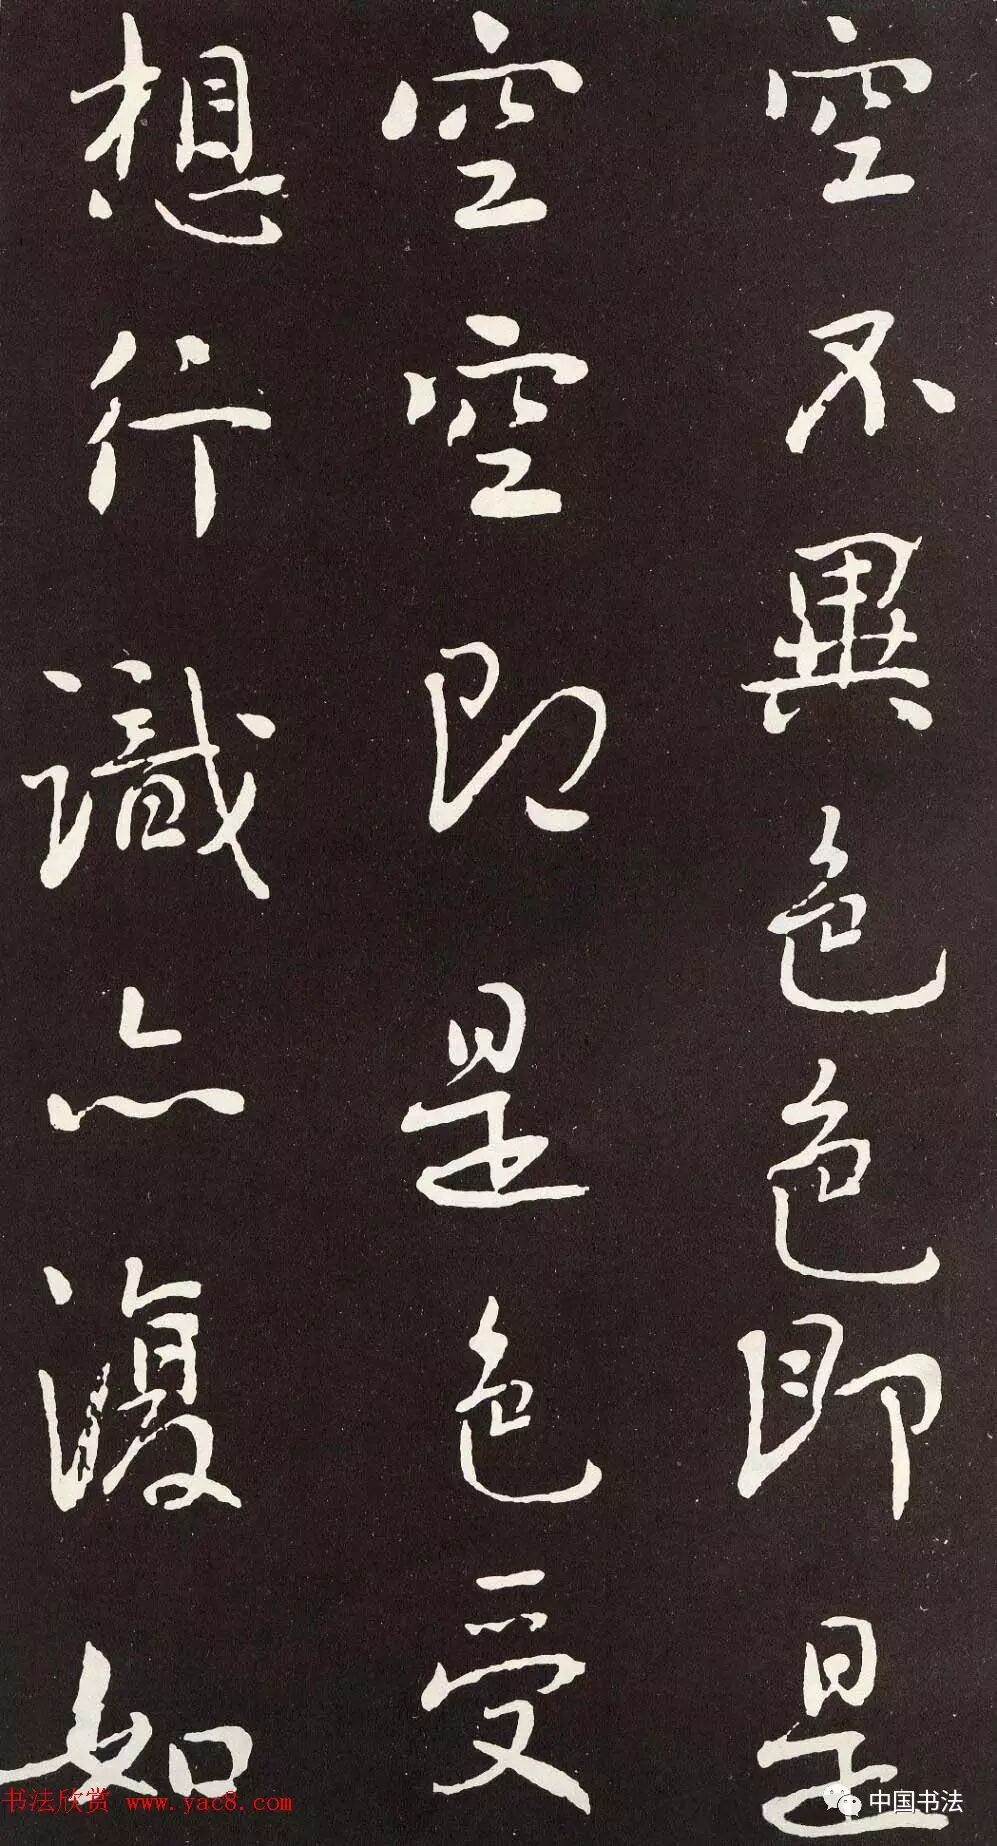 空不異色色即是
空空即是色受
想行識亦復如
书法欣赏 www.yac8.com
中国书法